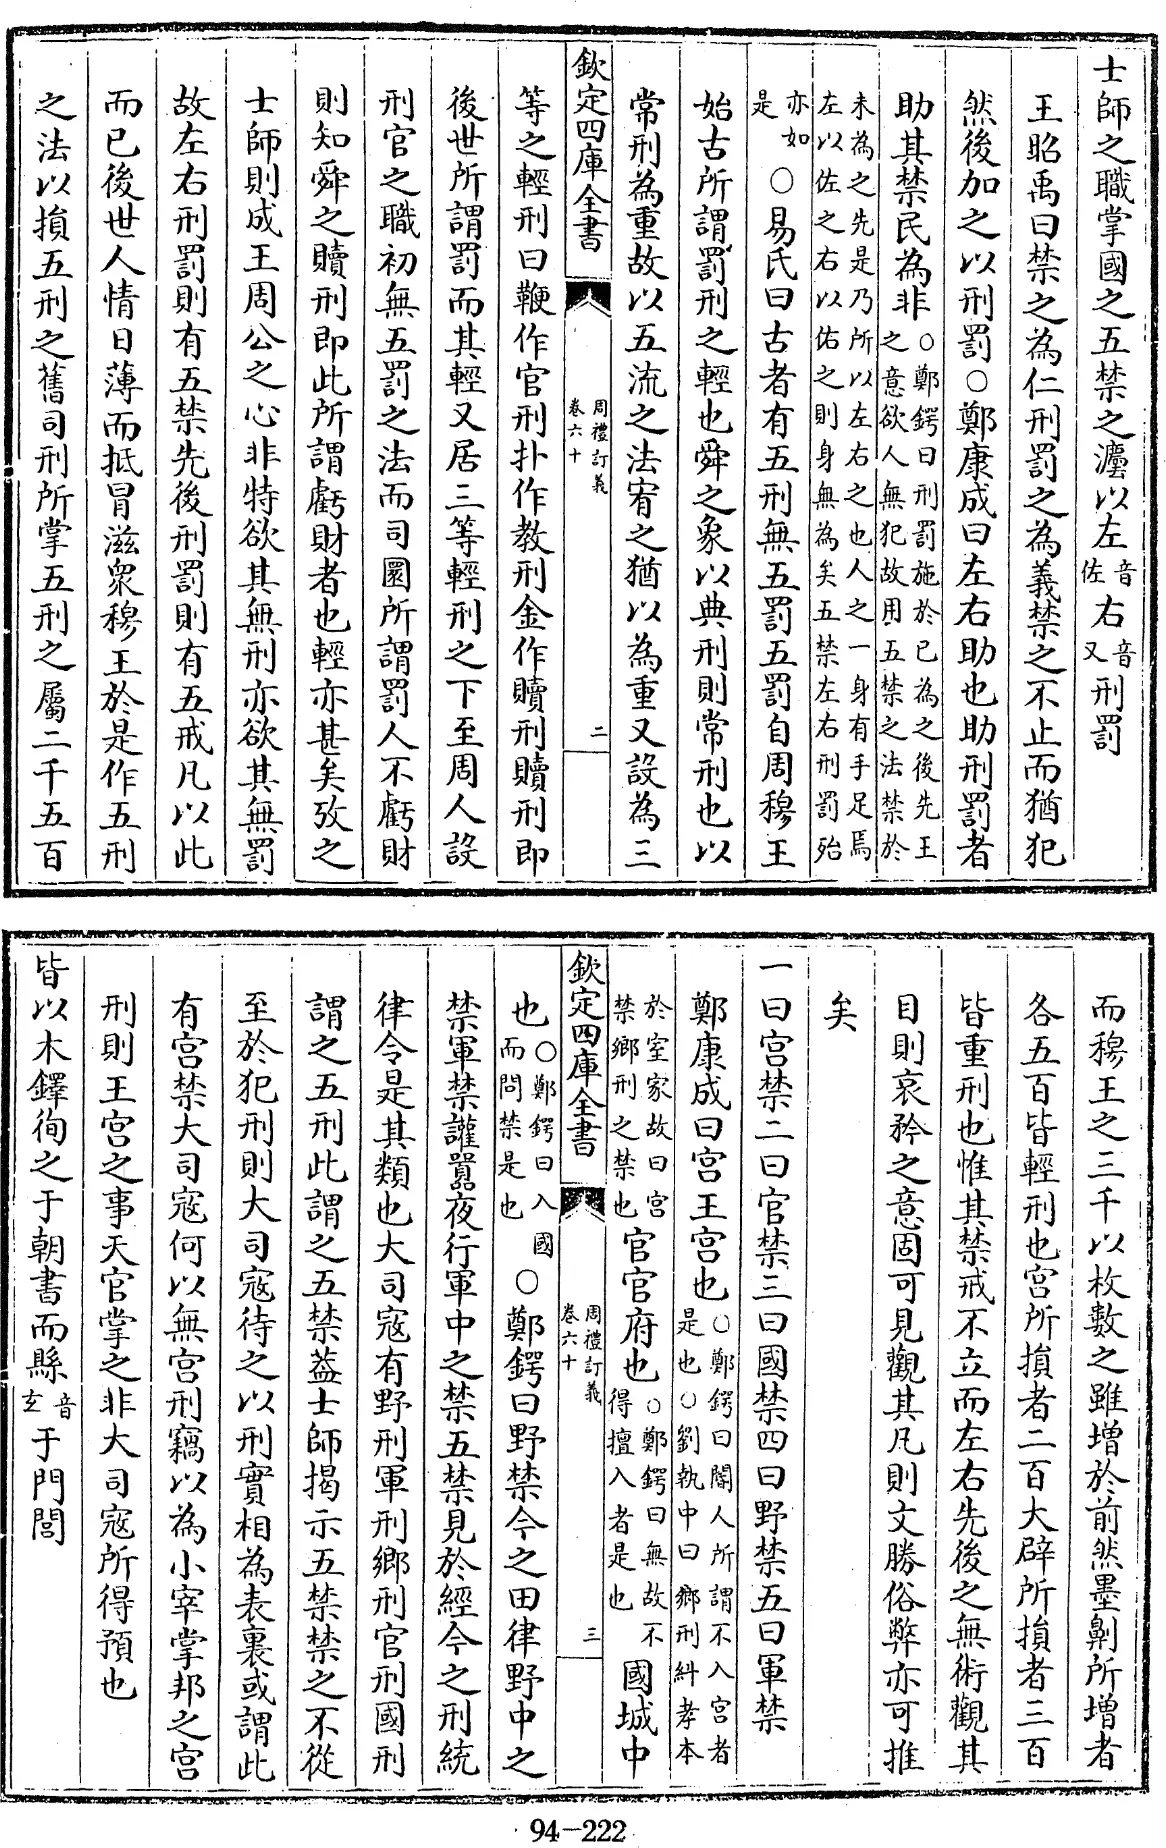 士師之職掌國之五禁之灋以左音佐右音又刑罰
王昭禹曰禁之為仁刑罰之為義禁之不止而猶犯
然後加之以刑罰○鄭康成曰左右助也助刑罰者
助其禁民為非○鄭鍔曰刑罰施於已為之後先王之意欲人無犯故用五禁之法禁於
未為之先是乃所以左右之也人之一身有手足焉左以佐之右以佑之則身無為矣五禁左右刑罰殆
亦如是○易氏曰古者有五刑無五罰五罰自周穆王
始古所謂罰刑之輕也舜之象以典刑則常刑也以
常刑為重故以五流之法宥之猶以為重又設為三
欽定四庫全書
周禮訂義
卷六十
二
等之輕刑曰鞭作官刑扑作教刑金作贖刑贖刑即
後世所謂罰而其輕又居三等輕刑之下至周人設
刑官之職初無五罰之法而司圜所謂罰人不虧財
則知舜之贖刑即此所謂虧財者也輕亦甚矣攷之
士師則成王周公之心非特欲其無刑亦欲其無罰
故左右刑罰則有五禁先後刑罰則有五戒凡以此
而已後世人情日薄而抵冒滋衆穆王於是作五刑
之法以損五刑之舊司刑所掌五刑之屬二千五百
而穆王之三千以枚數之雖增於前然墨劓所增者
各五百皆輕刑也宫所損者二百大辟所損者三百
皆重刑也惟其禁戒不立而左右先後之無術觀其
目則哀矜之意固可見觀其凡則文勝俗弊亦可推
矣
一曰宫禁二曰官禁三曰國禁四曰野禁五曰軍禁
鄭康成曰宫王宫也○鄭鍔曰閽人所謂不入宫者是也○劉執中曰鄉刑糾孝本
於室家故曰宫禁鄉刑之禁也官官府也○鄭鍔曰無故不得擅入者是也國城中
欽定四庫全書
周禮訂義
卷六十
三
也○鄭鍔曰入國而問禁是也○鄭鍔曰野禁今之田律野中之
禁軍禁讙嚻夜行軍中之禁五禁見於經今之刑統
律令是其類也大司寇有野刑軍刑鄉刑官刑國刑
謂之五刑此謂之五禁葢士師揭示五禁禁之不從
至於犯刑則大司寇待之以刑實相為表裏或謂此
有宫禁大司寇何以無宫刑竊以為小宰掌邦之宫
刑則王宫之事天官掌之非大司寇所得預也
皆以木鐸徇之于朝書而縣音玄于門閭
94-222